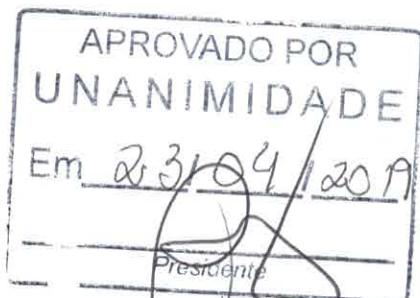 APROVADO POR
UNANIMIDADE
Em 23/04/2019
Presidente